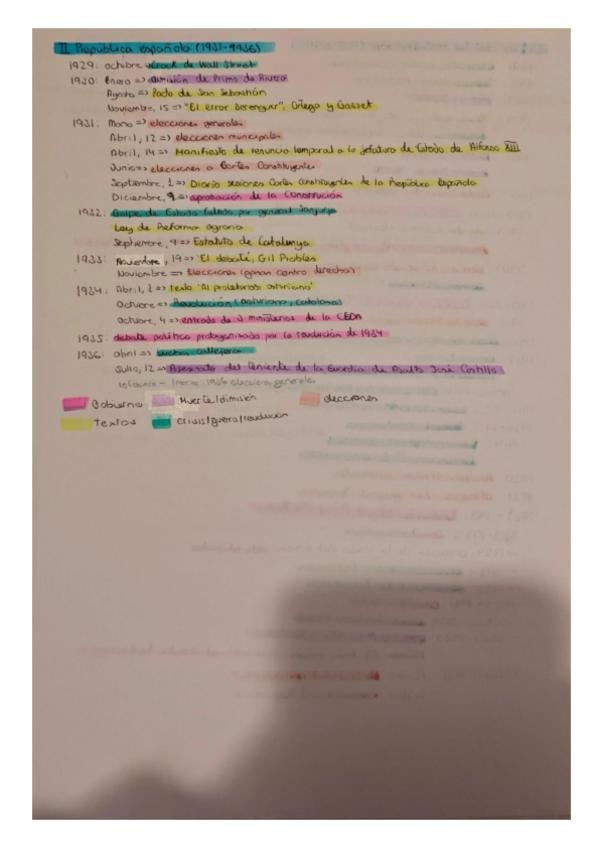 II República española (1931-1936)
1929: octubre crack de Wall Street
1930: Enero => dimisión de Primo de Rivera
Agosto => Pacto de San Sebastián
Noviembre, 15 => "El error Berenguer", Ortega y Gasset
1931: => elecciones generales
Abril, 12 => elecciones municipales
Abril, 14 => Manifiesto de renuncia temporal a la jefatura de Estado de Alfonso XIII
Junio => elecciones a Cortes Constituyentes
Septiembre, 1 => Diario sesiones Cortes constituyentes de la República Española
Diciembre, 9 => aprobación de la Constitución
1932: Golpe de Estado fallido por general Sanjurjo
Ley de Reforma agraria
Septiembre, 9 => Estatuto de Catalunya
1933: Noviembre, 19 => "El debate", Gil Robles
Noviembre => Elecciones (ganan centro derecha)
1934: Abril, 1 => texto "Al proletariado asturiano"
Octubre => Revolución (asturiana, catalana)
Octubre, 4 => entrada de 3 ministerios de la CEDA
1935: debate político protagonizado por la revolución de 1934
1936: abril => luchas callejeras
Julio, 12 => Asesinato del teniente de la Guardia de Asalto José Castillo
1936 elecciones generales
Gobierno Muerte/dimisión elecciones
Textos Crisis/guerra/revolución